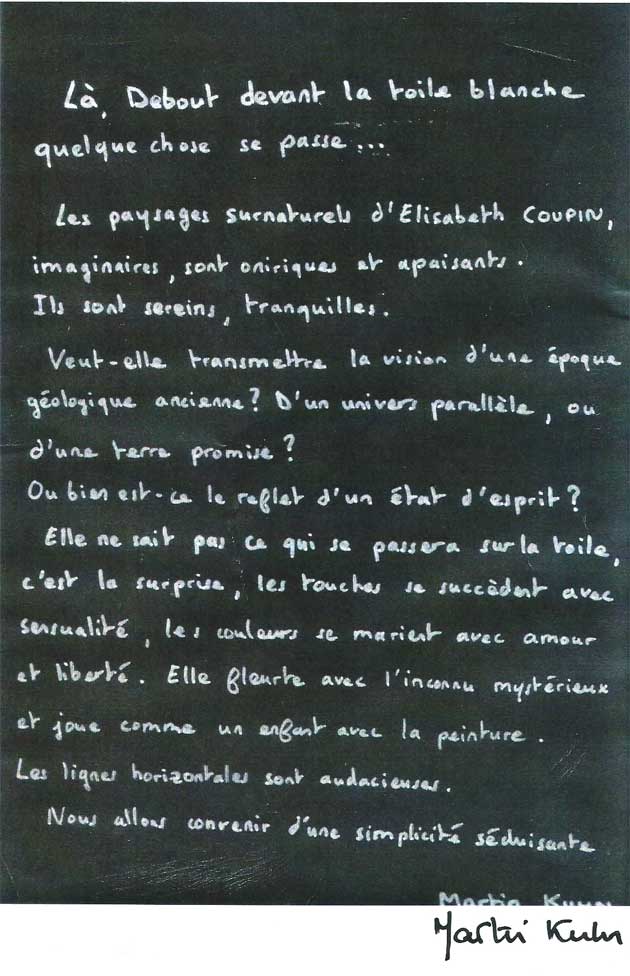 Là, Debout devant la toile blanche
quelque chose se passe...
Les paysages surnaturels d'Elisabeth COUPIN,
imaginaires, sont oniriques et apaisants.
Ils sont sereins, tranquilles.
Veut-elle transmettre la vision d'une époque
géologique ancienne? D'un univers parallèle, ou
d'une terre promise?
Ou bien est-ce le reflet d'un état d'esprit?
Elle ne sait pas ce qui se passera sur la toile,
c'est la surprise, les touches se succèdent avec
sensualité, les couleurs se marient avec amour
et liberté. Elle fleurte avec l'inconnu mystérieux
et joue comme un enfant avec la peinture.
Les lignes horizontales sont audacieuses.
Nous allons convenir d'une simplicité séduisante
Martin Kuhn
Martin Kuhn